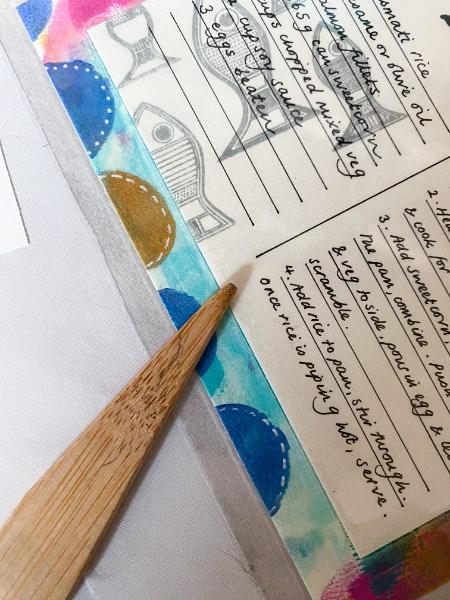 rice
or olive oil
salmon fillets
65g can sweetcorn
cups chopped mixed veg
cup soy sauce
3 eggs beaten
2. Hea
& cook for
3. Add sweetcorn,
the pan, combine. Push
& veg to side, pour in egg &
scramble.
4. Add rice to pan, stir through.
once rice is piping hot, serve.